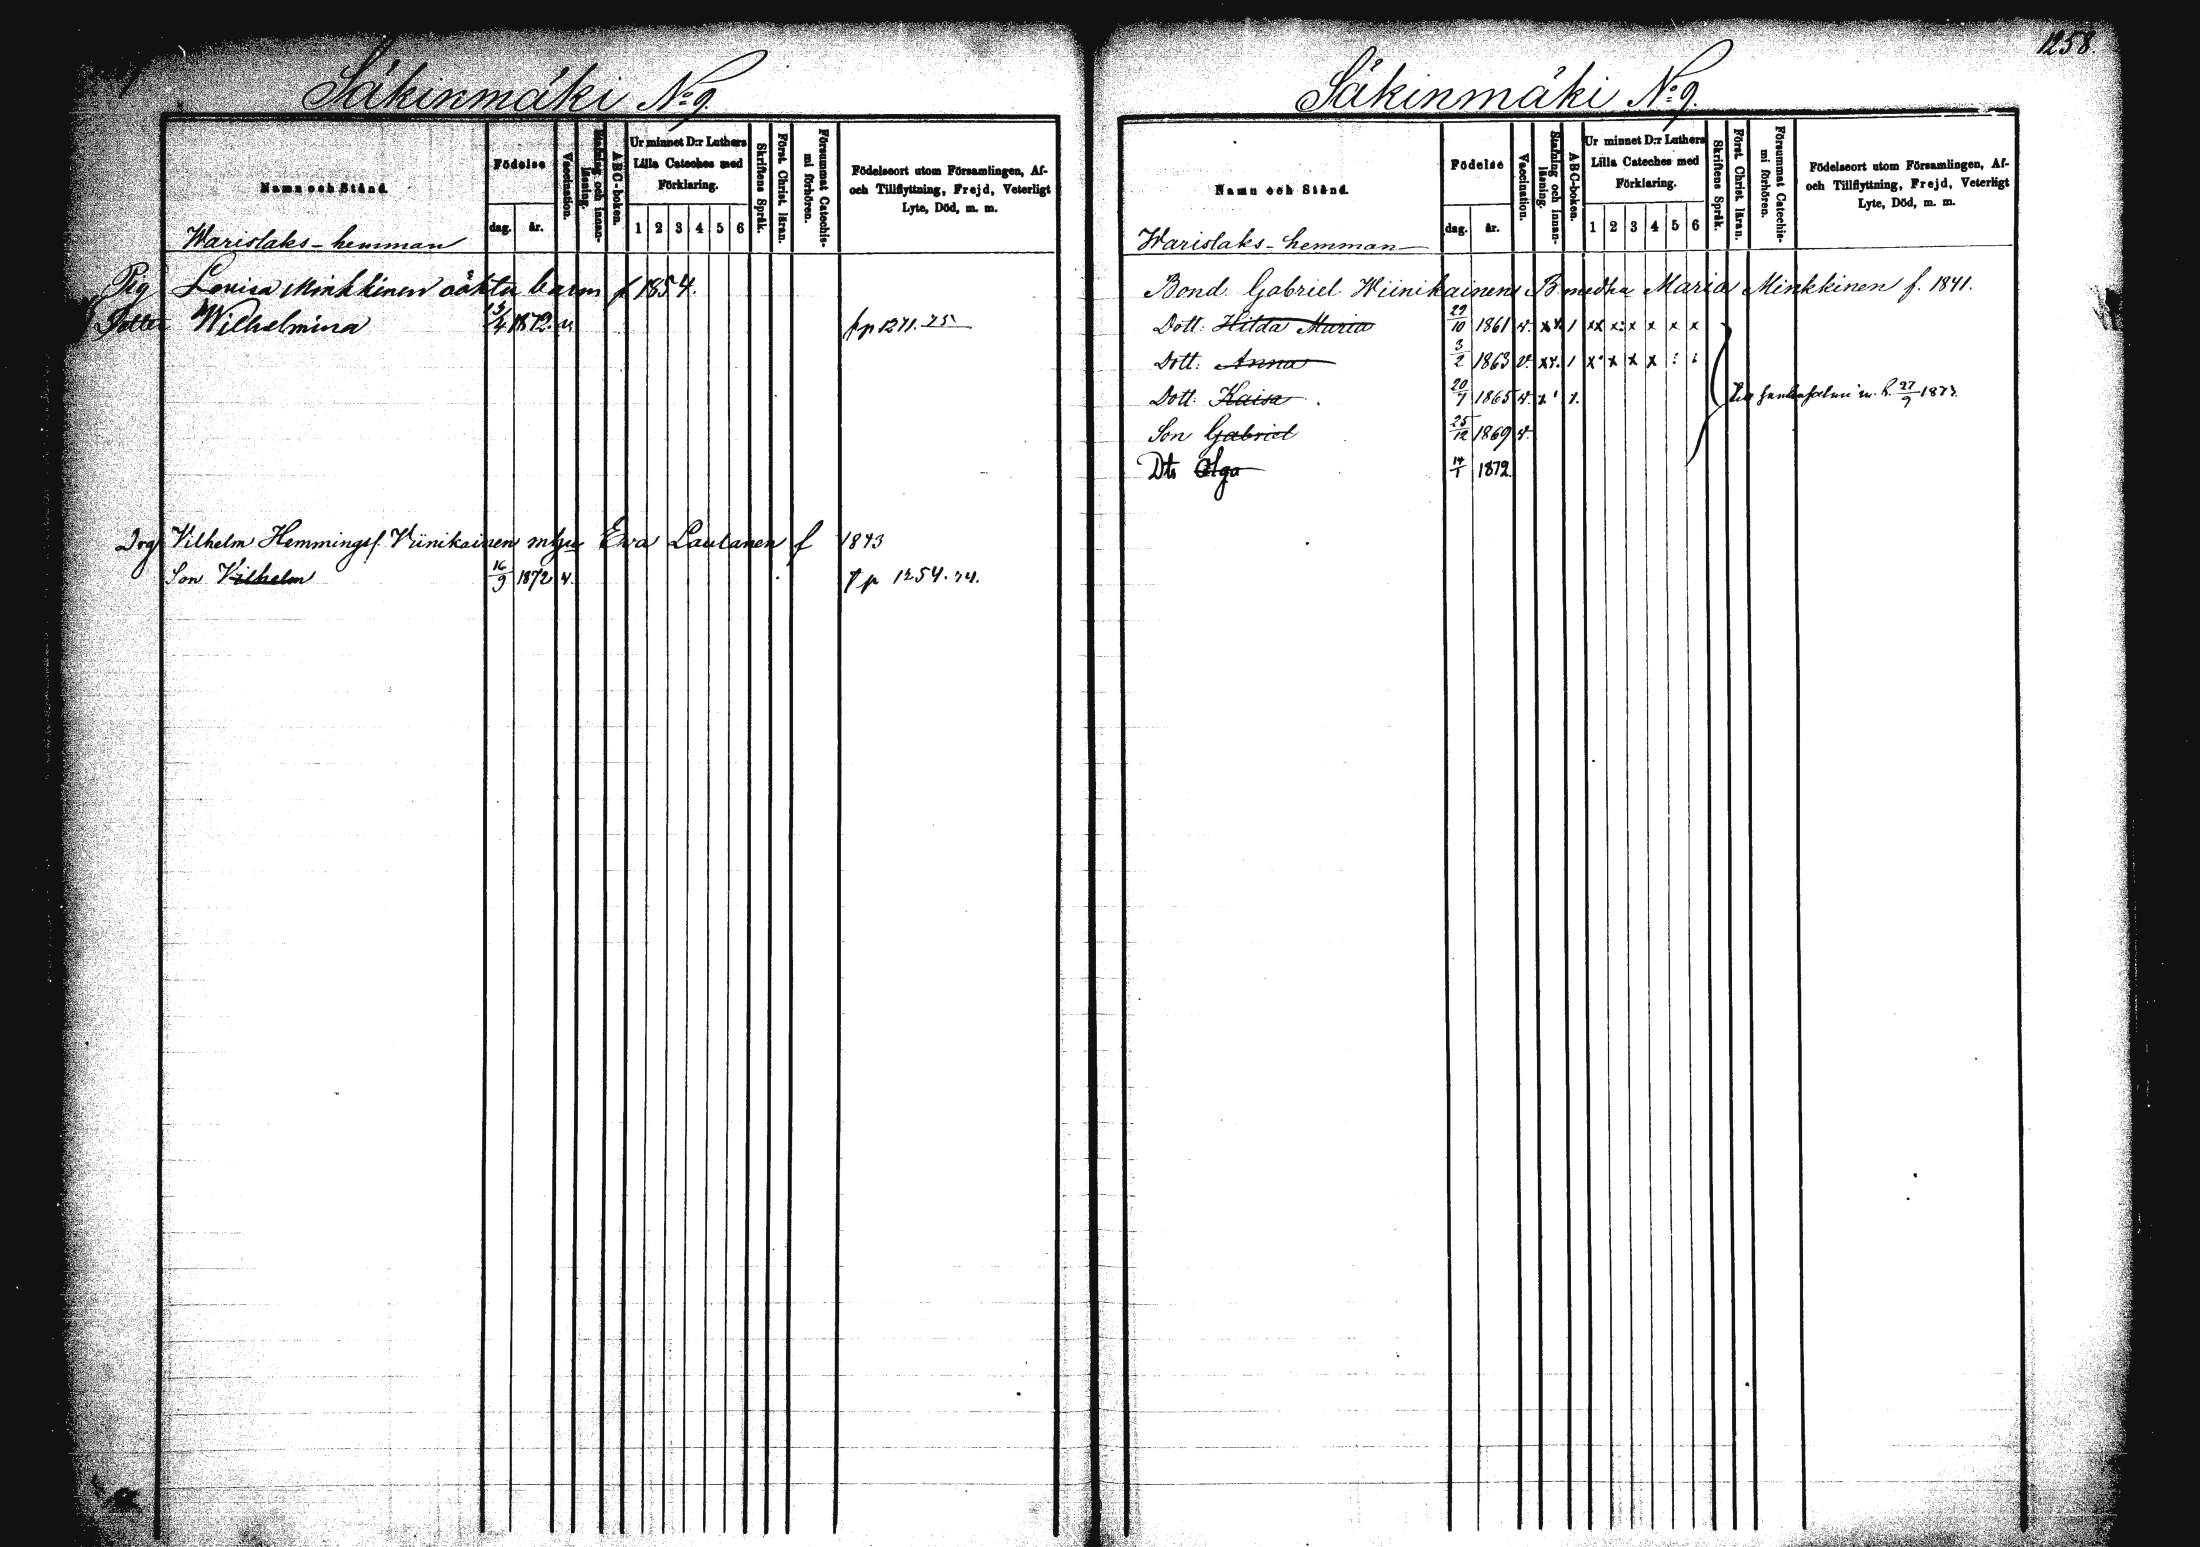 1258.
Säkinmäki No 9.
Namn och Stånd.
Födelse
dag. år.
Vaccination.
Stafning och innanläsning.
ABC-boken.
Ur minnet D:r Luthers Lilla Cateches med Förklaring.
1 2 3 4 5 6
Skriftens Språk.
Först Christ läran.
Försummat Catechismi förhören.
Födelseort utom Församlingen, Af- och Tillflyttning, Frejd, Veterligt Lyte, Död, m. m.
Warislaks-hemman
Pig Lovisa Minkkinen oäkta barn f 1854.
Dotter Wilhelmina 1872. fp 1271. 75
Drg Vilhelm Hemmingsf. Viinikainen Ewa Laulanen f 1843
Son Vilhelm 16/9 1872 v. fp 1254. 74.
Säkinmäki No 9.
Namn och Stånd.
Födelse
dag. år.
Vaccination.
Stafning och innanläsning.
ABC-boken.
Ur minnet D:r Luthers Lilla Cateches med Förklaring.
1 2 3 4 5 6
Skriftens Språk.
Först Christ läran.
Försummat Catechismi förhören.
Födelseort utom Församlingen, Af- och Tillflyttning, Frejd, Veterligt Lyte, Död, m. m.
Warislaks-hemman
Bond. Gabriel Wiinikainens B. medha Maria Minkkinen f. 1841.
Dott: Hilda Maria 29/10 1861 v. xx 1 xx x x x x x
Dott: Anna 3/2 1863 v. xx. 1 x x x x
Dott: Kaisa 20/7 1865 v. x 1. 27/9 1873
Son Gabriel 25/12 1869 v.
Dtr Olga 14/1 1872.